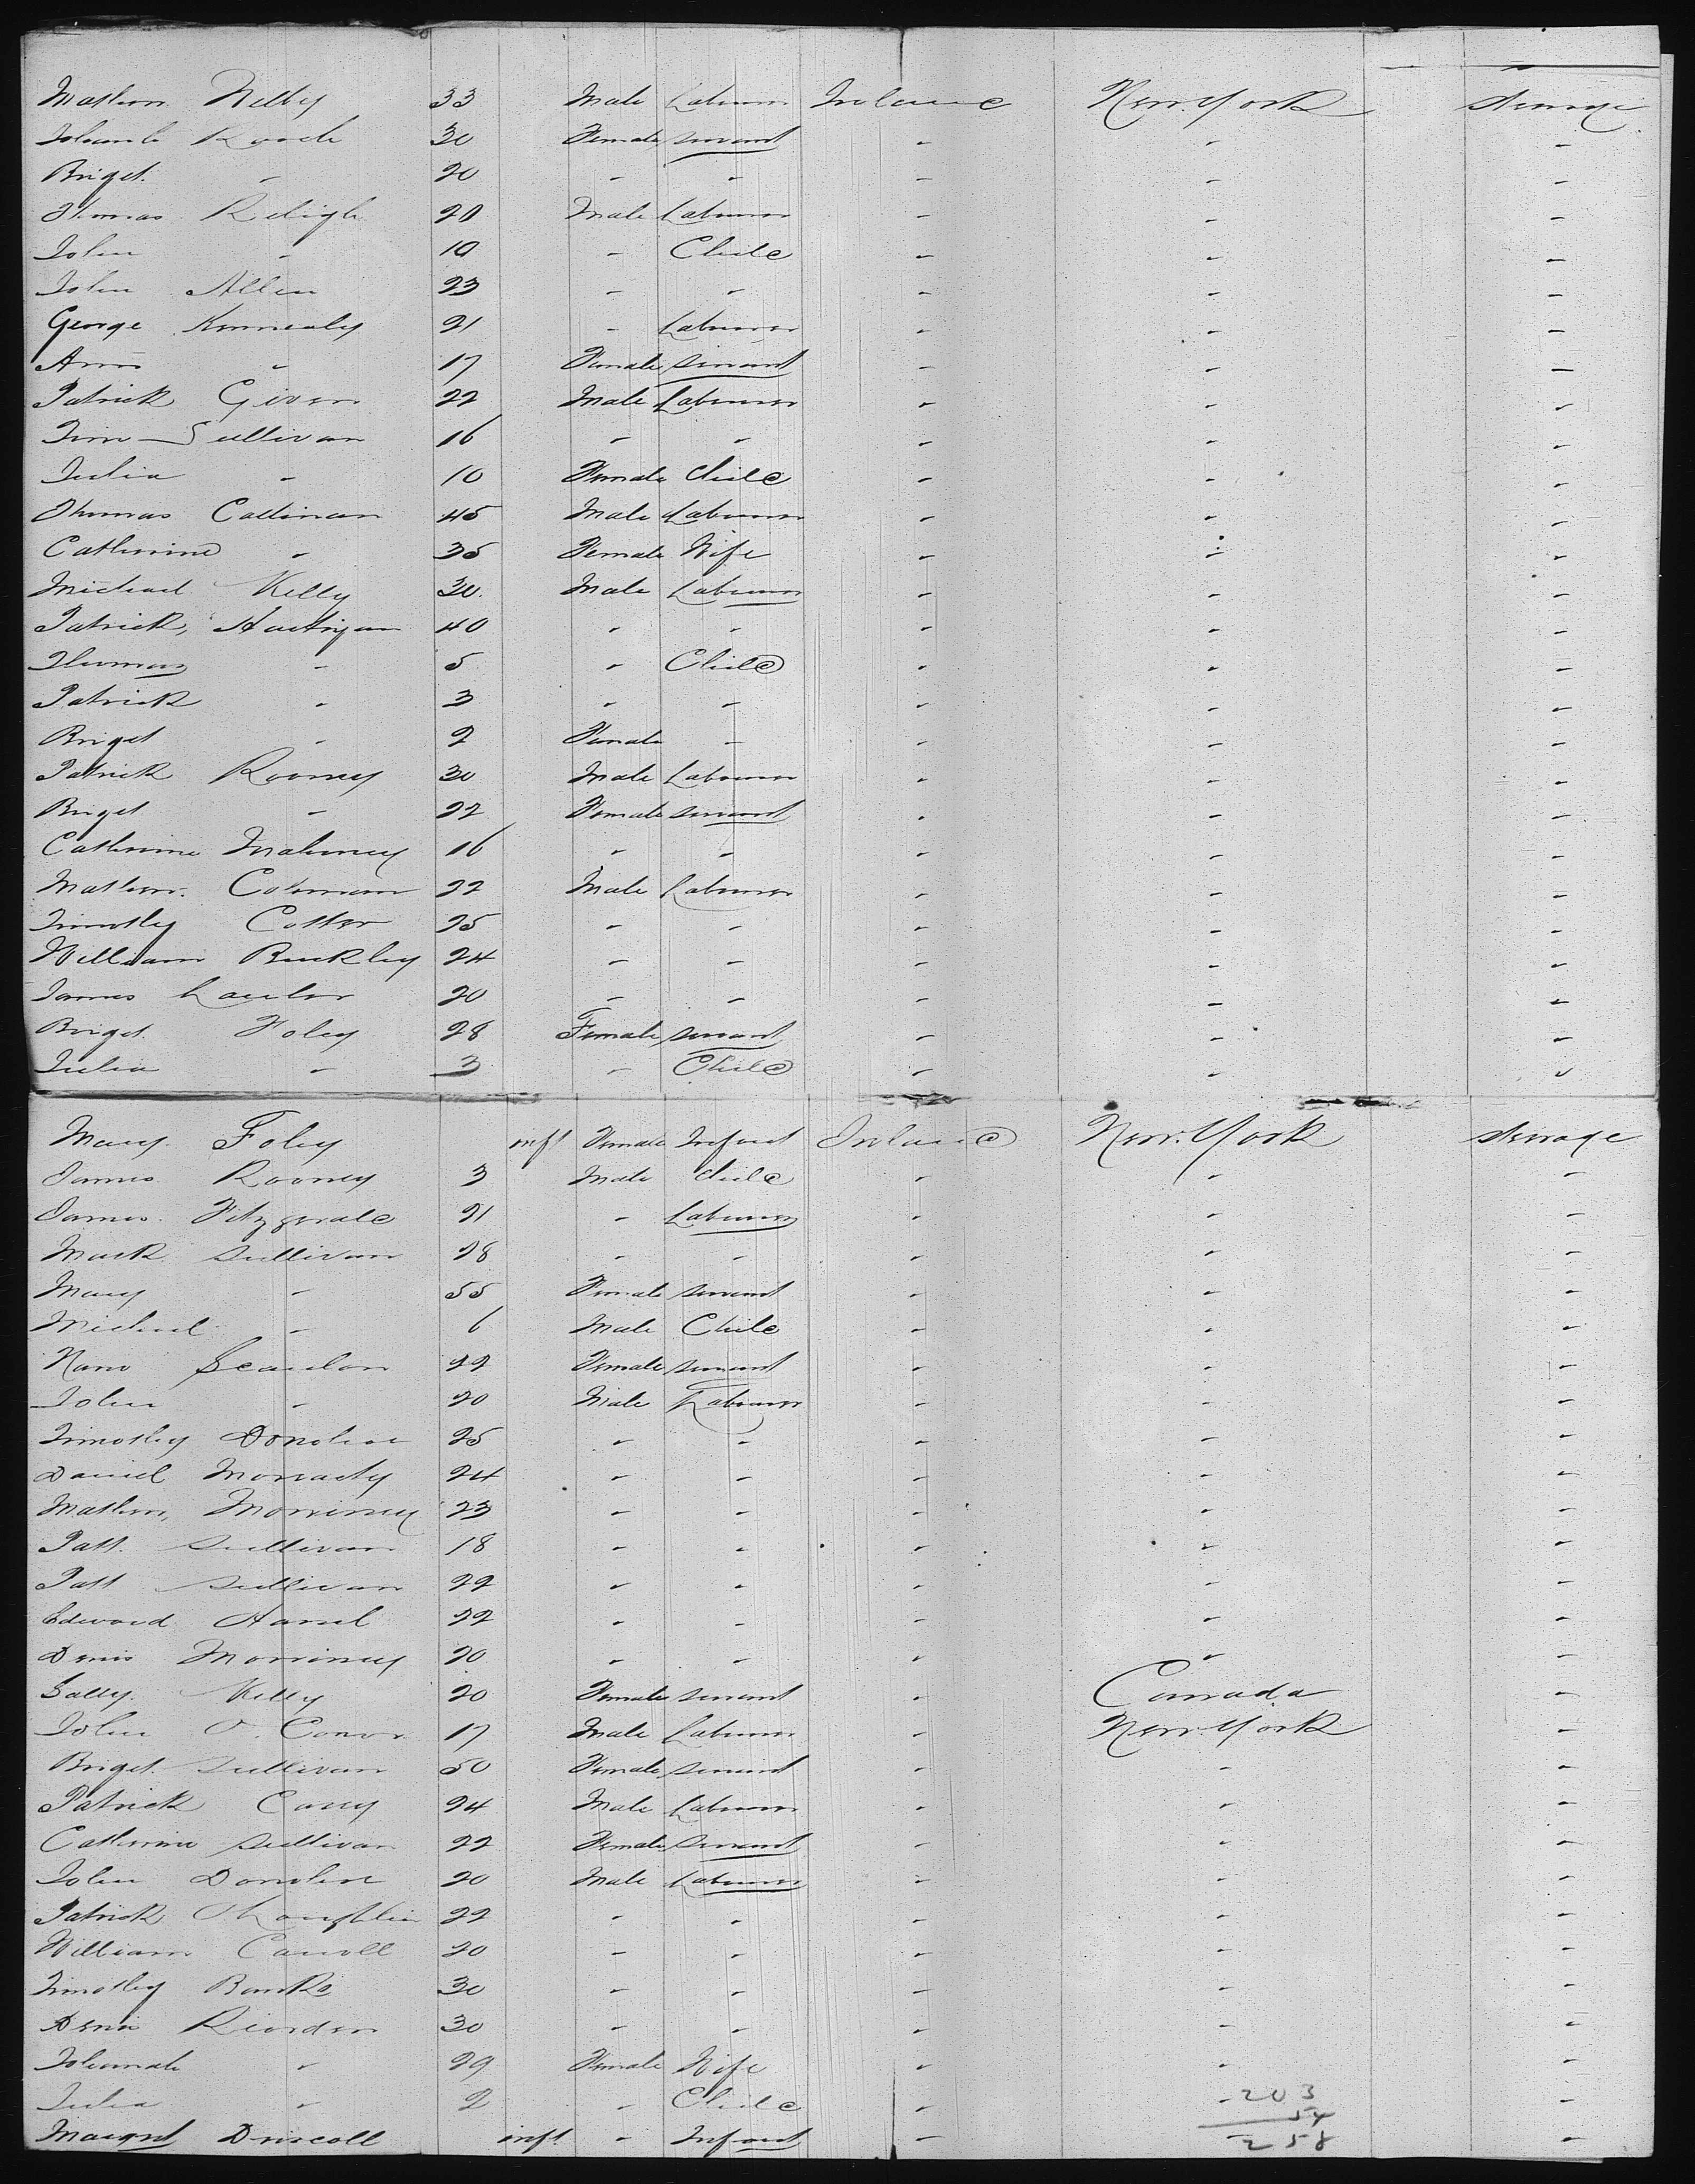 Mathew Kelly 33 Male Labourer Ireland New York Steerage
Johanah Roach 30 Female servant - - -
Briget - 20 - - - - -
Thomas 20 Male Labourer - - -
John - 10 - Child - - -
John Allen 23 - - - - -
George Kennealy 21 - Labourer - - -
Ann - 17 Female servant - - -
Patrick Given 22 Male Labourer - - -
Tim Sullivan 16 - - - - -
Julia - 10 Female Child - - -
Thomas Callinan 45 Male Labourer - - -
Catherine - 35 Female Wife - - -
Michael Kelly 30 Male Labourer - - -
Patrick Hartigan 40 - - - - -
Thomas - 5 - Child - - -
Patrick - 3 - - - - -
Briget - 2 Female - - - -
Patrick Rooney 30 Male Labourer - - -
Briget - 22 Female servant - - -
Catherine Mahoney 16 - - - - -
Mathew Coleman 22 Male Labourer - - -
Timothy Cotter 25 - - - - -
William Buckley 24 - - - - -
James Lawlor 20 - - - - -
Briget Foley 28 Female servant - - -
Julia - 3 - Child - - -
Mary Foley inft Female Infant Ireland New York Steerage
James Rooney 3 Male Child - - -
James Fitzgerald 21 - Labourer - - -
Mark Sullivan 28 - - - - -
Mary - 55 Female servant - - -
Michael - 6 Male Child - - -
Nano Scanlon 22 Female servant - - -
John - 20 Male Labourer - - -
Timothy Donohue 25 - - - - -
Daniel Moriarty 24 - - - - -
Mathew 23 - - - - -
Patt Sullivan 18 - - - - -
Patt Sullivan 22 - - - - -
Edward 22 - - - - -
Denis 20 - - - - -
Sally Kelly 20 Female servant - Canada -
John O Conor 17 Male Labourer - New York -
Briget Sullivan 50 Female servant - - -
Patrick Casey 24 Male Labourer - - -
Catherine Sullivan 22 Female servant - - -
John Donohue 20 Male Labourer - - -
Patrick OLoughlin 22 - - - - -
William Carroll 20 - - - - -
Timothy 30 - - - - -
Denis Riordan 30 - - - - -
Johannah - 29 Female Wife - - -
Julia - 2 - Child - - 203 -
54
Margret Driscoll inft - Infant - 258 -